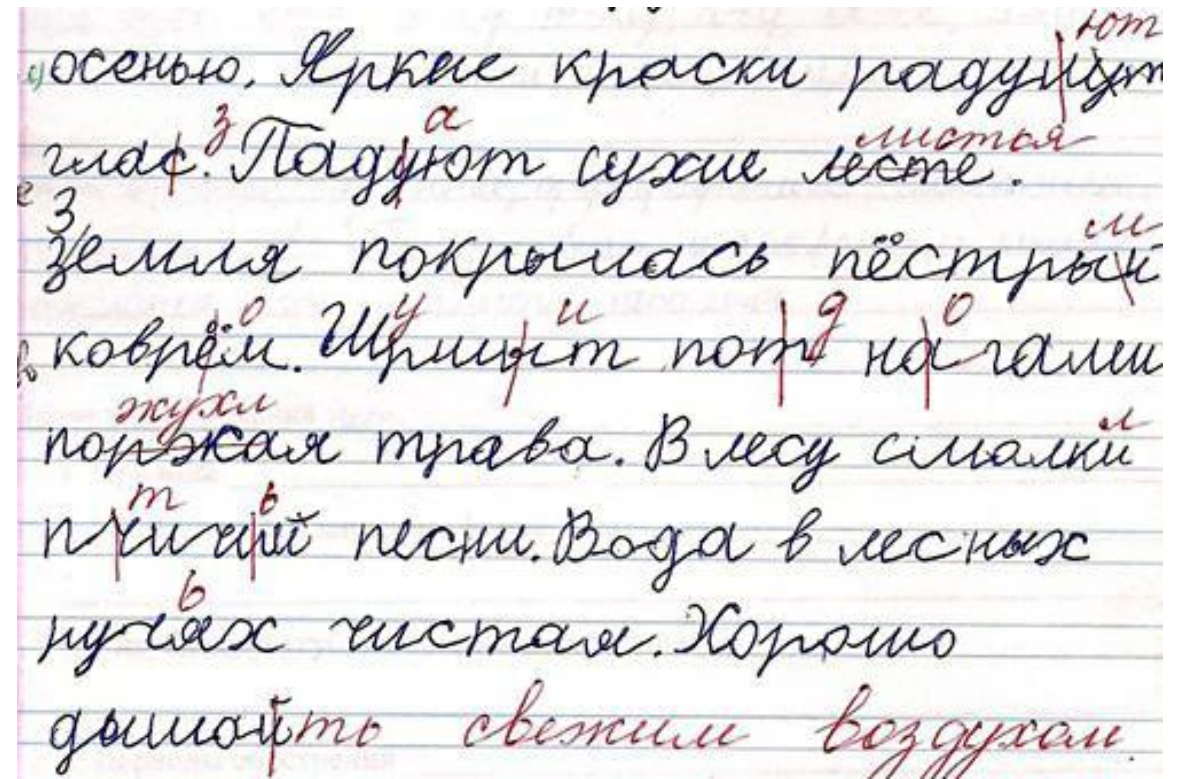 ют
осенью. Яркие краски радуйут
з а листья
глас. Падуют сухие лесте.
З м
земля покрылась пёстрый
о у и д о
коврём. Шрмит пот на гами
жухл л
поржая трава. В лесу смалки
т ь
пчичий песни. Вода в лесных
ь
ручях чистая. Хорошо
дышойть свежим воздухом.